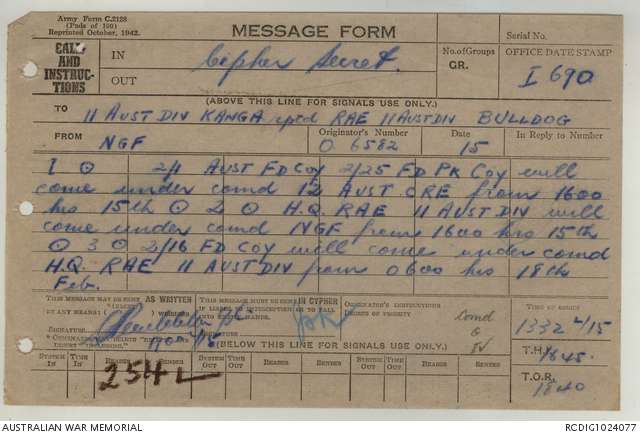 Army Form C.2128
(Pads of 100)
Reprinted October, 1942.
MESSAGE FORM
Serial No.
CALL AND INSTRUCTIONS
IN
Cipher Secret.
OUT
No. of Groups
GR.
OFFICE DATE STAMP
I 690
(ABOVE THIS LINE FOR SIGNALS USE ONLY.)
TO 11 AUST DIV KANGA rptd RAE 11 AUST DIV BULLDOG
FROM NGF
Originator's Number
O 6582
Date
15
In Reply to Number
1 ⊙ 2/4 AUST FD Coy 2/25 FD PK Coy will
come under comd 12 AUST CRE from 1600
hrs 15th ⊙ 2 ⊙ H.Q. RAE 11 AUST DIV will
come under comd NGF from 1600 hrs 15th
⊙ 3 ⊙ 2/16 FD Coy will come under comd
H.Q. RAE 11 AUST DIV from 0600 hrs 18th
Feb.
THIS MESSAGE MAY BE SENT AS WRITTEN
BY ANY MEANS
SIGNATURE
THIS MESSAGE MUST BE SENT IN CYPHER
IF LIABLE TO INTERCEPTION OR TO FALL
INTO ENEMY HANDS.
SIGNATURE
ORIGINATOR'S INSTRUCTIONS
DEGREE OF PRIORITY
TIME OF ORIGIN
1332 L/15
(BELOW THIS LINE FOR SIGNALS USE ONLY.)
T.H.I. 1845.
SYSTEM IN
TIME IN
READER
SENDER
SYSTEM OUT
TIME OUT
READER
SENDER
SYSTEM OUT
TIME OUT
READER
SENDER
T.O.R.
1840
254
AUSTRALIAN WAR MEMORIAL
RCDIG1024077